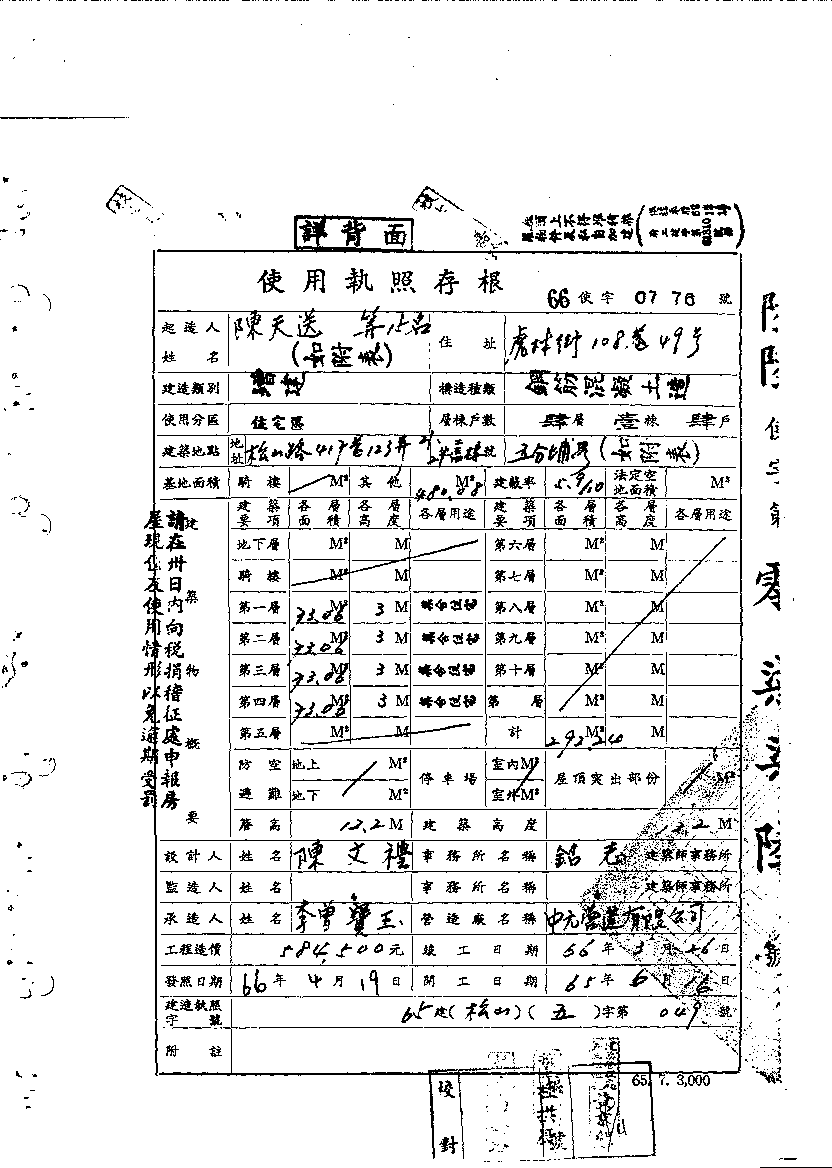 詳背面
屋頂上不得堆積雜
使用執照存根
66 使字 0776 號
起造人姓名 陳天送 等15名 (如附表) 住址 虎林街108巷49号
建造類別 增建 構造種類 鋼筋混凝土造
使用分區 住宅區 層棟戶數 肆層 壹棟 肆戶
建築地點 地址 松山路417巷123弄 號 五分埔 (如附表)
基地面積 騎樓 M² 其他 480.08 M² 建蔽率 5.9/10 法定空地面積 M²
建築要項 各層面積 各層高度 各層用途 建築要項 各層面積 各層高度 各層用途
地下層 M² M 第六層 M² M
騎樓 M² M 第七層 M² M
第一層 73.06 M² 3 M 集合住宅 第八層 M² M
第二層 73.06 M² 3 M 集合住宅 第九層 M² M
第三層 73.06 M² 3 M 集合住宅 第十層 M² M
第四層 73.06 M² 3 M 集合住宅 第 層 M² M
第五層 M² M 計 292.24 M² M
防空避難 地上 M² 停車場 室內 M² 屋頂突出部份 M²
地下 M² 室外 M²
簷高 12.2 M 建築高度 12.2 M
設計人 姓名 陳文禮 事務所名稱 建築師事務所
監造人 姓名 事務所名稱 建築師事務所
承造人 姓名 李曾寶玉 營造廠名稱 中元營造有限公司
工程造價 584,500元 竣工日期 66年3月16日
發照日期 66年4月19日 開工日期 65年6月16日
建造執照字號 65建(松山)(五)字第 049 號
附註
建築物概要
請在卅日內向稅捐稽征處申報房
屋現住及使用情形以免逾期受罰
65. 7. 3,000
校對